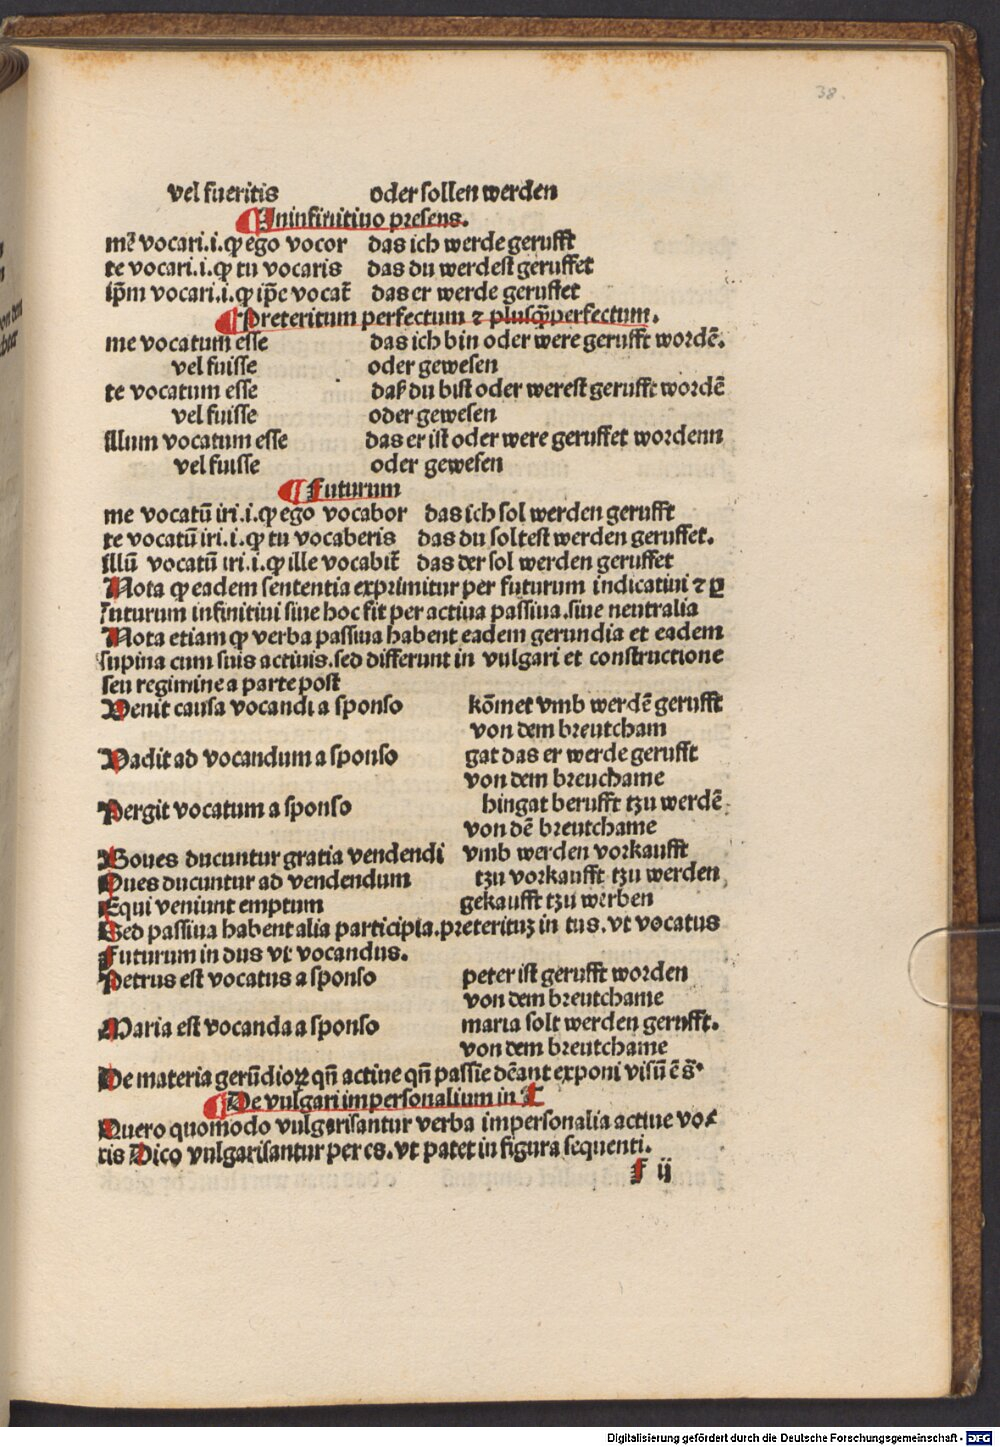 38.
vel fueritis oder sollen werden
¶ In infinitiuo presens.
me vocari .i. ꝙ ego vocor das ich werde gerufft
te vocari .i. ꝙ tu vocaris das du werdest geruffet
ip̄m vocari .i. ꝙ ip̄e vocat̄ das er werde geruffet
¶ Preteritum perfectum ⁊ plusq̄perfectum.
me vocatum esse das ich bin oder were gerufft wordē.
vel fuisse oder gewesen
te vocatum esse daß du bist oder werest gerufft wordē
vel fuisse oder gewesen
illum vocatum esse das er ist oder were geruffet wordenn
vel fuisse oder gewesen
¶ Futurum
me vocatū iri .i. ꝙ ego vocabor das ich sol werden gerufft
te vocatū iri .i. ꝙ tu vocaberis das du soltest werden geruffet.
Illū vocatū iri .i. ꝙ ille vocabit̄ das der sol werden geruffet
Nota ꝙ eadem sententia exprimitur per futurum indicatiui ⁊ ꝑ
futurum infinitiui siue hoc fit per actiua passiua. siue neutralia
Nota etiam ꝙ verba passiua habent eadem gerundia et eadem
supina cum suis actiuis. sed differunt in vulgari et constructione
seu regimine a parte post
Venit causa vocandi a sponso kōmet vmb werdē gerufft
von dem breutcham
Vadit ad vocandum a sponso gat das er werde gerufft
von dem breuchame
Pergit vocatum a sponso hingat berufft tzu werdē
von dē breutchame
Boues ducuntur gratia vendendi vmb werden vorkaufft
Oues ducuntur ad vendendum tzu vorkaufft tzu werden
Equi veniunt emptum gekaufft tzu werben
Sed passiua habent alia participia. preterituz in tus. vt vocatus
Futurum in dus vt vocandus.
Petrus est vocatus a sponso peter ist gerufft worden
von dem breutchame
Maria est vocanda a sponso maria solt werden gerufft.
von dem breutchame
De materia gerūdioꝝ qn̄ actiue qn̄ passie dēant exponi visū ē s̄
¶ De vulgari impersonalium in T
Quero quomodo vulgarisantur verba impersonalia actiue vo⸗
cis Dico vulgarisantur per es. vt patet in figura sequenti.
F ij
Digitalisierung gefördert durch die Deutsche Forschungsgemeinschaft - DFG